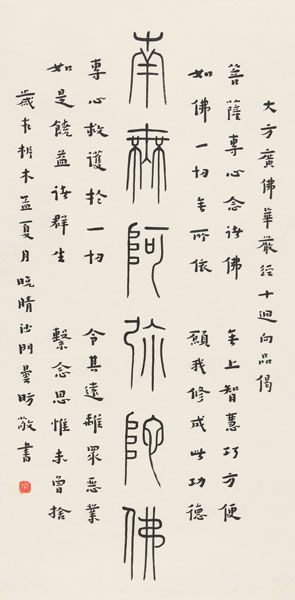 大方廣佛華嚴經十迴向品偈
菩薩專心念諸佛 无上智慧巧方便
如佛一切无所依 願我修成此功德
南無阿弥陀佛
專心救護於一切 令其遠離眾惡業
如是饒益諸群生 繫念思惟未曾捨
歲在析木孟夏月晚晴沙門曇昉敬書